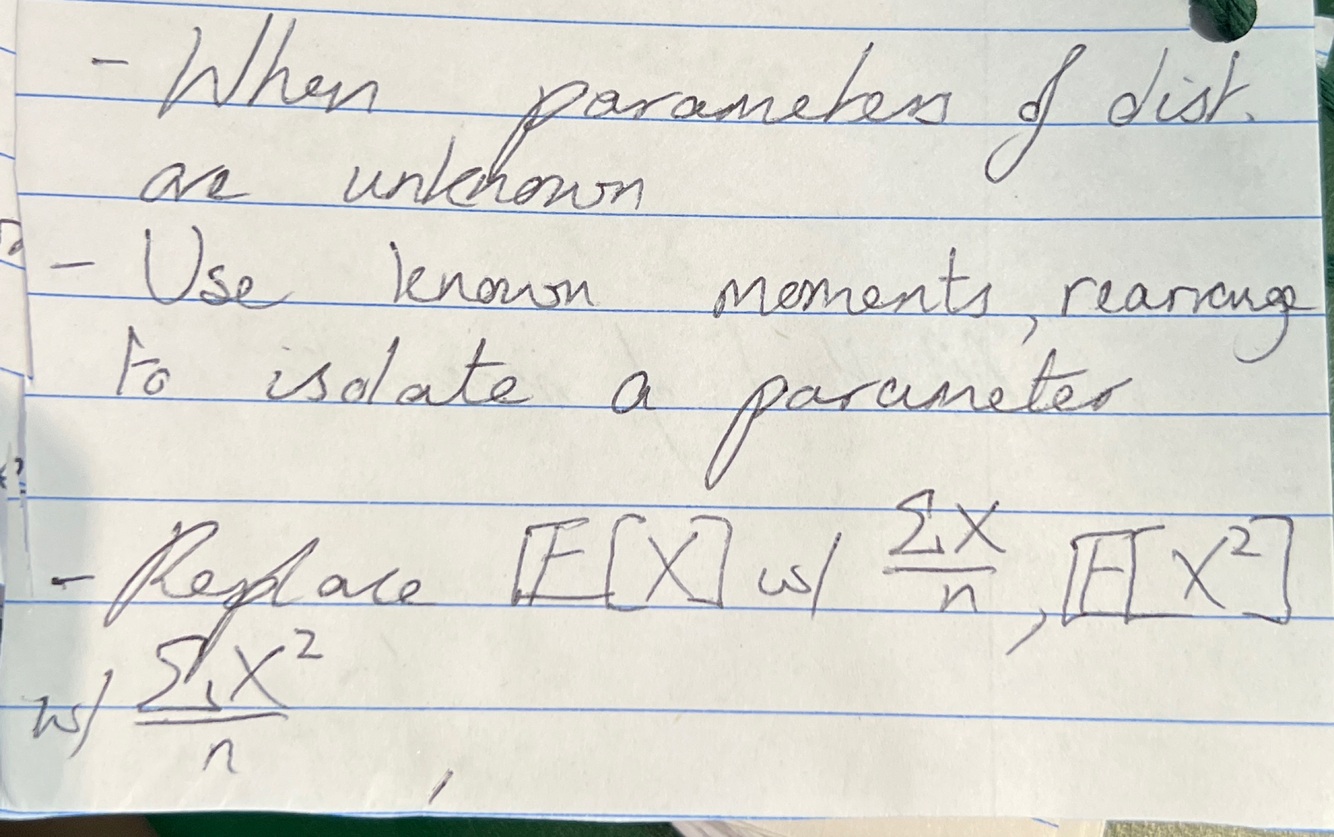 - When parameters of dist.
are unknown
- Use known moments, rearrange
to isolate a parameter
- Replace 𝔼[X] w/ ΣX/n, 𝔼[X²]
w/ ΣX²/n ,